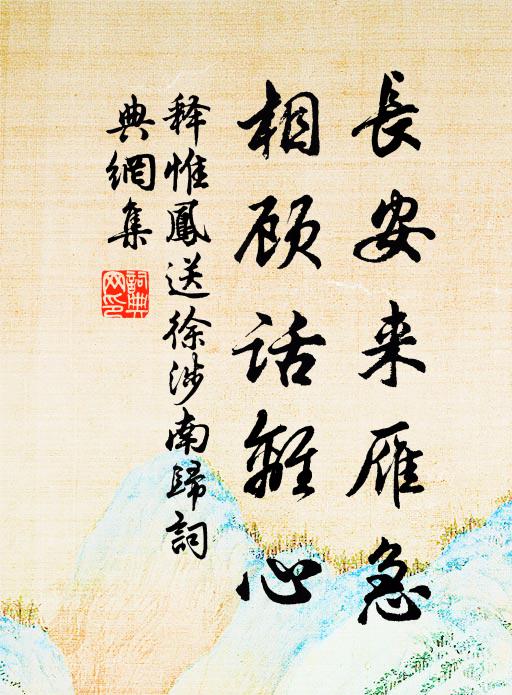 長安来雁急
相顾话離心
释惟鳳送徐涉南歸詞
典網集
詞典
网印